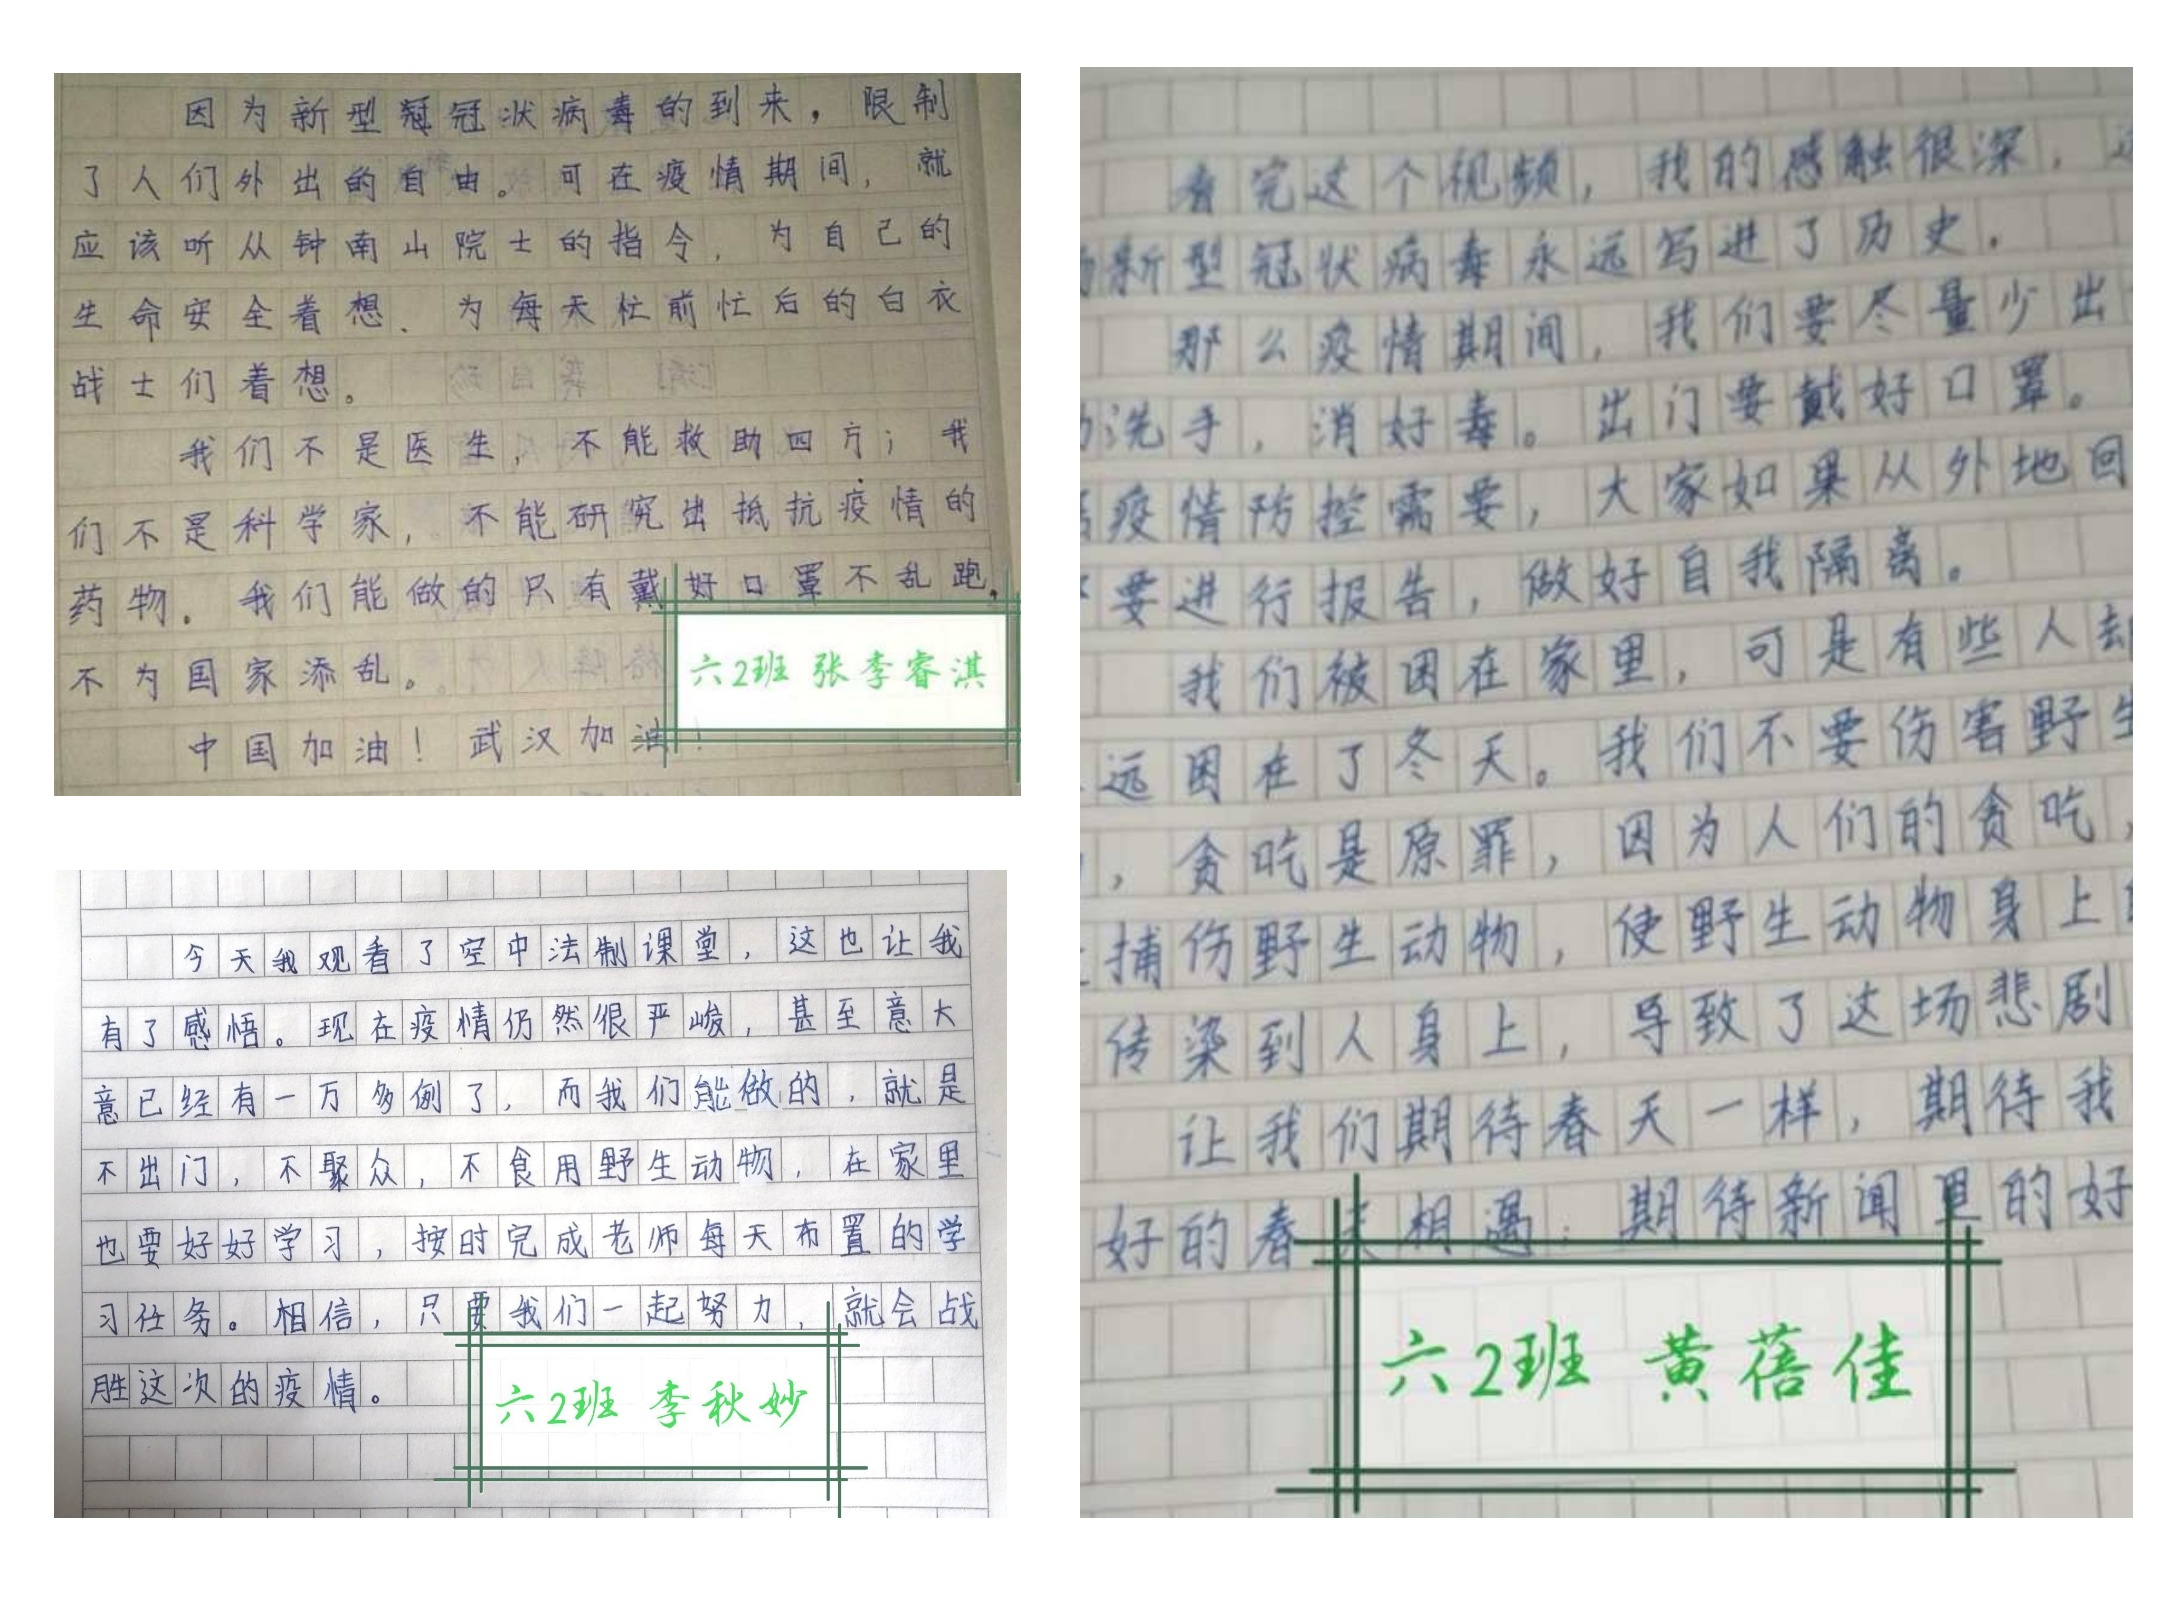 因为新型冠冠状病毒的到来，限制
了人们外出的自由。可在疫情期间，就
应该听从钟南山院士的指令，为自己的
生命安全着想、为每天忙前忙后的白衣
战士们着想。
我们不是医生，不能救助四方；我
们不是科学家，不能研究出抵抗疫情的
药物。我们能做的只有戴好口罩不乱跑，
不为国家添乱。
中国加油！武汉加油！
六2班 张李睿淇
今天我观看了空中法制课堂，这也让我
有了感悟。现在疫情仍然很严峻，甚至意大
意已经有一万多例了，而我们能做的，就是
不出门，不聚众，不食用野生动物，在家里
也要好好学习，按时完成老师每天布置的学
习任务。相信，只要我们一起努力，就会战
胜这次的疫情。
六2班 李秋妙
看完这个视频，我的感触很深，
新型冠状病毒永远写进了历史。
那么疫情期间，我们要尽量少出
洗手，消好毒。出门要戴好口罩。
疫情防控需要，大家如果从外地回
要进行报告，做好自我隔离。
我们被困在家里，可是有些人却
远困在了冬天。我们不要伤害野生
，贪吃是原罪，因为人们的贪吃，
捕伤野生动物，使野生动物身上
传染到人身上，导致了这场悲剧
让我们期待春天一样，期待我
好的春天相遇；期待新闻里的好
六2班 黄蓓佳